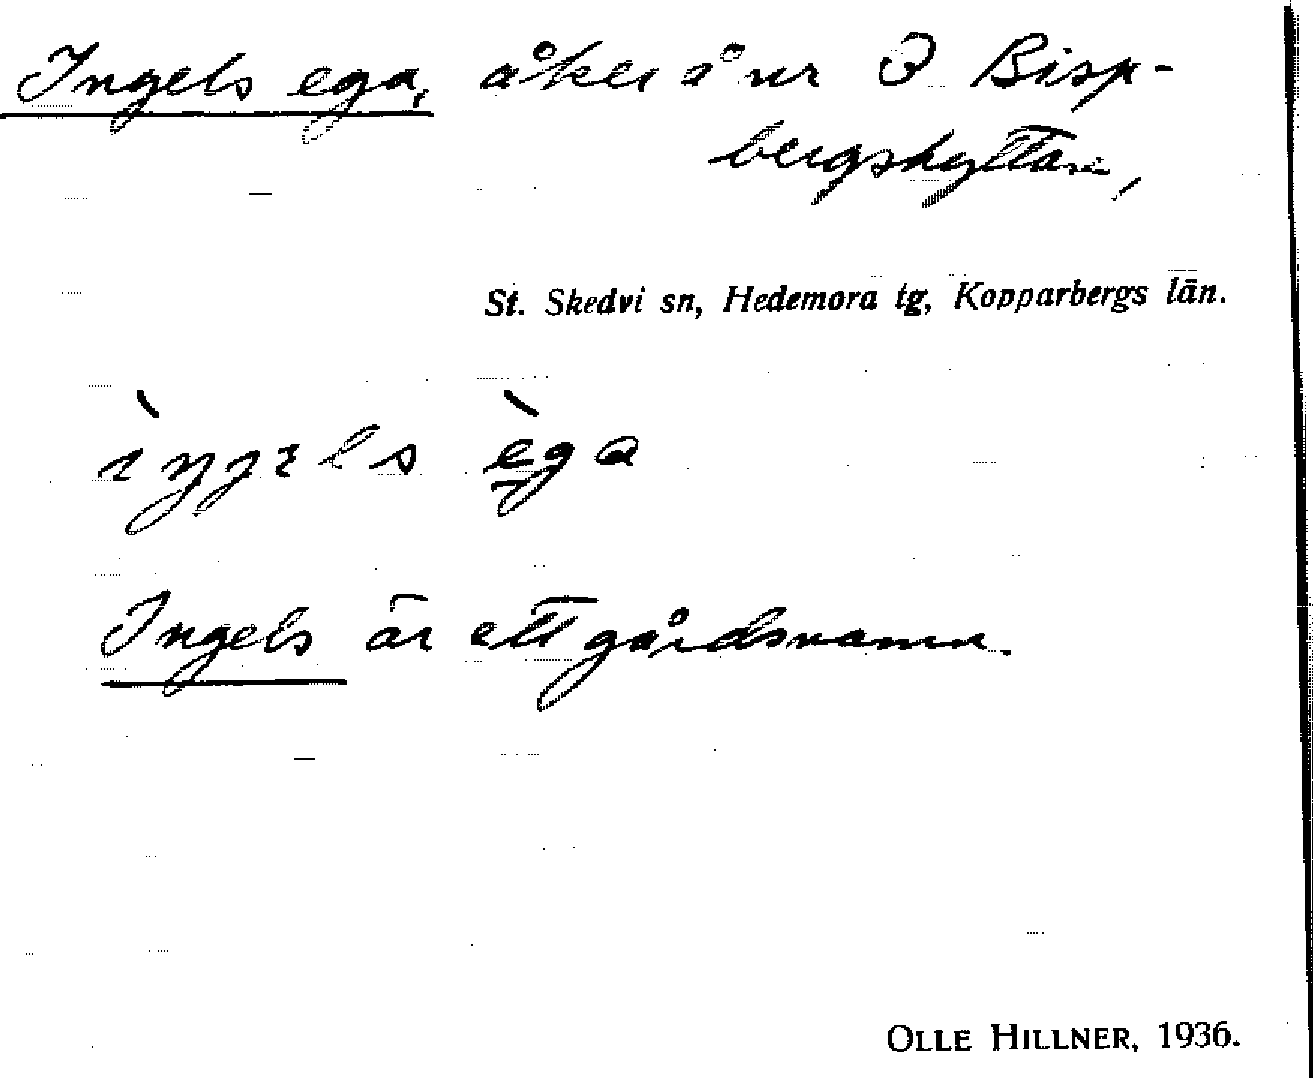 Ingels ega, åker å nr 3 Bisp-
bergshyttan,
St. Skedvi sn, Hedemora tg, Kopparbergs län.
ega
Ingels är ett gårdsnamn.
OLLE HILLNER, 1936.